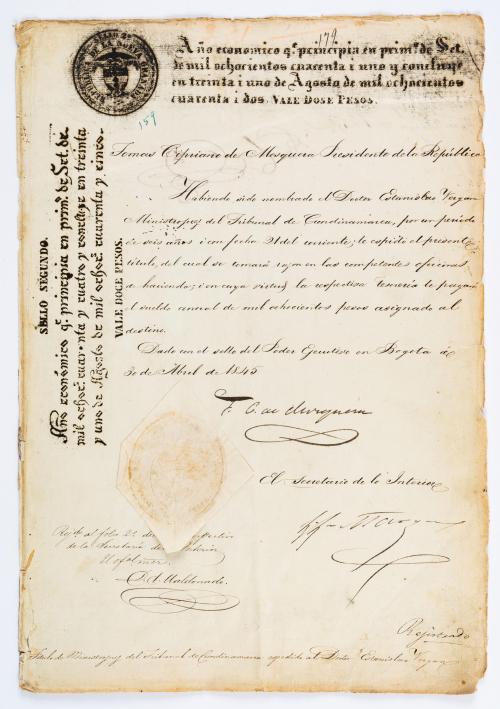 179
Año economico q.º principia en prim.º de Set.
de mil ochocientos cuarenta i uno y concluye
en treinta i uno de Agosto de mil ochocientos
cuarenta i dos. VALE DOSE PESOS.
159
SELLO SEGUNDO.
Año económico q.º principia en prim.º de Set. de
mil ochoc.s cuarenta y cuatro y concluye en treinta
y uno de Agosto de mil ochoc.s cuarenta y cinco.
VALE DOCE PESOS.
Tomas Cipriano de Mosquera Presidente de la República
Habiendo sido nombrado el Doctor Estanislao Vergara
Ministro juez del Tribunal de Cundinamarca, por un periodo
de seis años i con fecha 21 del corriente; le espido el presente
titulo, del cual se tomará razon en las competentes oficinas
de hacienda; i en cuya virtud la respectiva tesoreria le pagará
el sueldo anual de mil ochocientos pesos asignado al
destino.
Dado con el sello del Poder Ejecutivo en Bogotá á
30 de Abril de 1845
T. C. de Mosquera
El Secretario de lo Interior
Rej.do al folio 22 de
de la Secretaría del Interior
D. A. Maldonado.
Rejistrado
Titulo de Ministro juez del Tribunal de Cundinamarca espedido al Doctor Estanislao Vergara